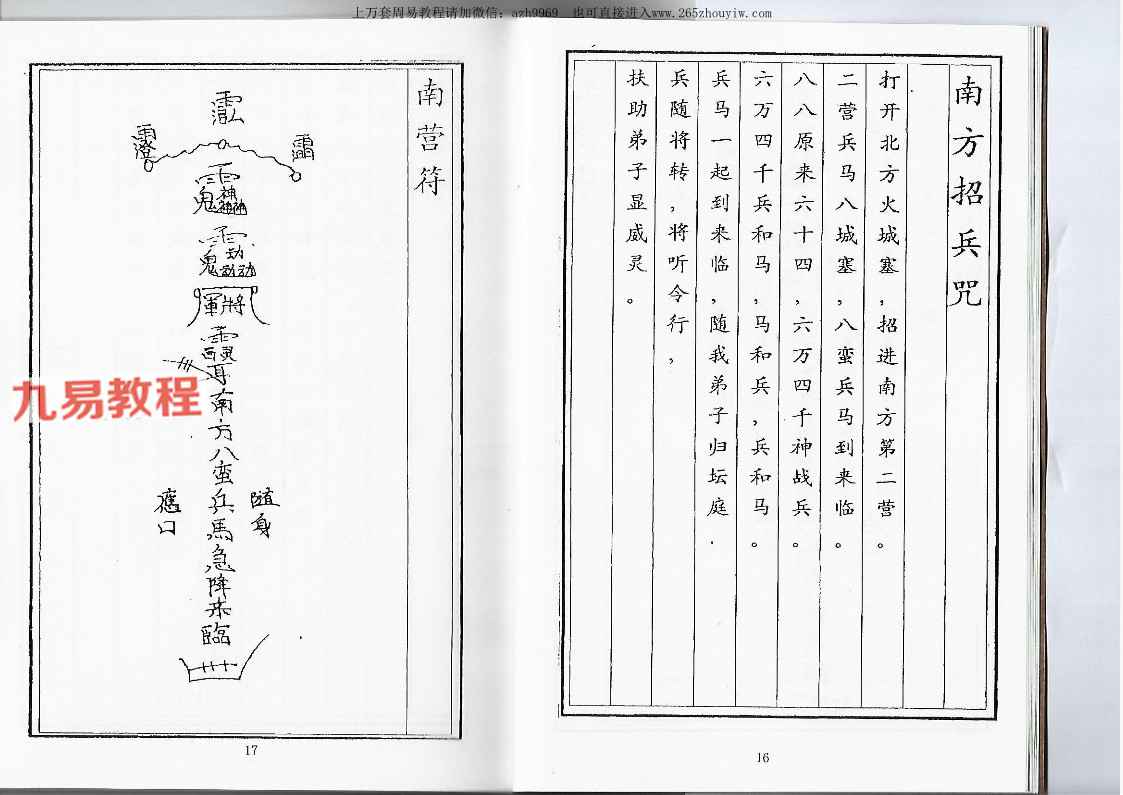 上万套周易教程请加微信：azh9969　也可直接进入www.265zhouyiw.com
南方招兵咒
打开北方火城塞，招进南方第二营。
二营兵马八城塞，八蛮兵马到来临。
八八原来六十四，六万四千神战兵。
六万四千兵和马，马和兵，兵和马。
兵马一起到来临，随我弟子归坛庭.
兵随将转，将听令行，
扶助弟子显威灵。
16
南营符
軍將
南方八蛮兵馬急降来臨
隨身
17
九易教程